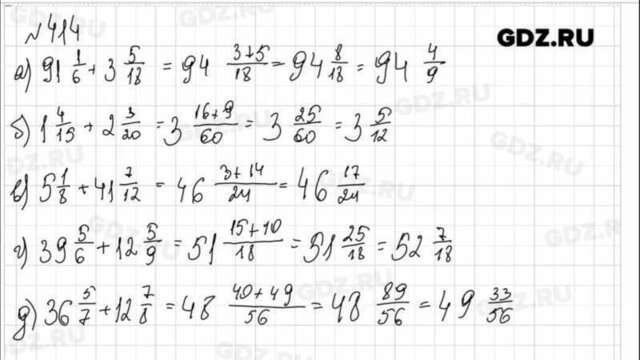 №414
GDZ.RU
а) 91 1/6 + 3 5/18 = 94 (3+5)/18 = 94 8/18 = 94 4/9
б) 1 4/15 + 2 3/20 = 3 (16+9)/60 = 3 25/60 = 3 5/12
в) 5 1/8 + 41 7/12 = 46 (3+14)/24 = 46 17/24
г) 39 5/6 + 12 5/9 = 51 (15+10)/18 = 51 25/18 = 52 7/18
д) 36 5/7 + 12 7/8 = 48 (40+49)/56 = 48 89/56 = 49 33/56